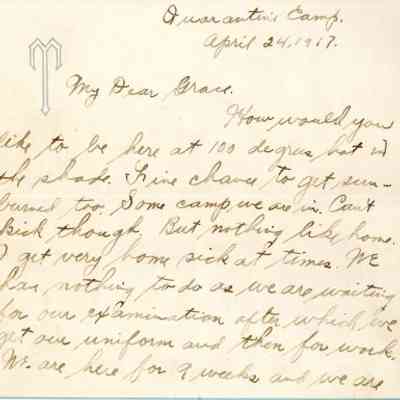 Quarantine Camp.
April 24, 1917.
My Dear Grace.
How would you
like to be here at 100 degrees hot in
the shade. Fine chance to get sun-
burned too. Some camp we are in. Can't
kick though. But nothing like home.
I get very home sick at times. We
has nothing to do as we are waiting
for our examination after which we
get our uniform and then for work.
We are here for 9 weeks and we are